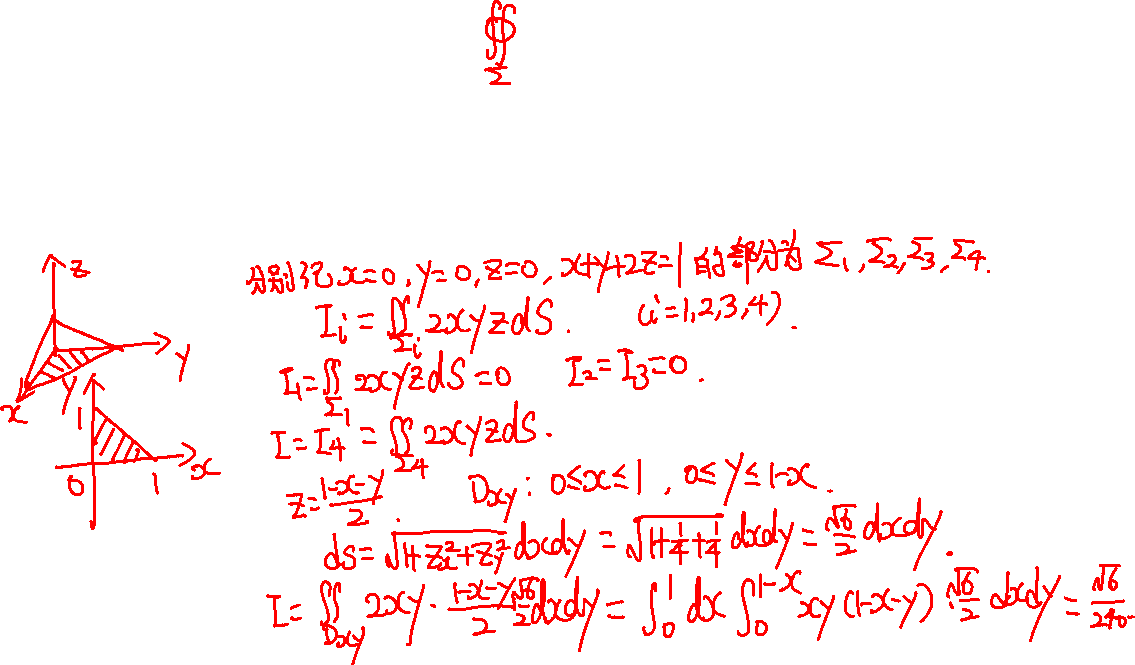 ∯_Σ
分别记 x=0, y=0, z=0, x+y+2z=1 的部分为 Σ₁, Σ₂, Σ₃, Σ₄.
I_i = ∬_{Σ_i} 2xyzdS. (i=1,2,3,4).
I₁ = ∬_{Σ₁} 2xyzdS = 0 I₂ = I₃ = 0.
I = I₄ = ∬_{Σ₄} 2xyzdS.
z = \frac{1-x-y}{2}. D_{xy}: 0≤x≤1, 0≤y≤1-x.
dS = \sqrt{1+z_x^2+z_y^2} dxdy = \sqrt{1+\frac{1}{4}+\frac{1}{4}} dxdy = \frac{\sqrt{6}}{2} dxdy.
I = ∬_{D_{xy}} 2xy·\frac{1-x-y}{2} \frac{\sqrt{6}}{2} dxdy = ∫_0^1 dx ∫_0^{1-x} xy(1-x-y)·\frac{\sqrt{6}}{2} dxdy = \frac{\sqrt{6}}{240}.
z
y
x
y
1
0
1
x